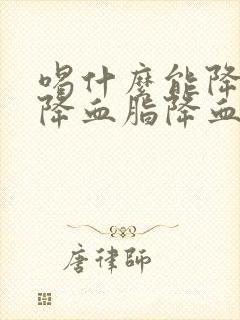 喝什麽能降
降血脂降血
唐律師